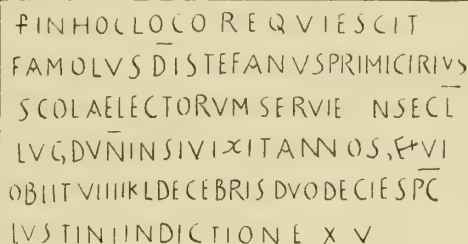 ϯINHOCLOCO REQVIESCIT
FAMOLVS D̅ISTEFANVSPRIMICIRIVS
SCOLAELECTORVM SERVIE NSECL̅
LVGDVN̅INSIVIXITANNOS,LXVI
OBIITVIIIIKLDECEBRISDVODECIESPC̅
IVSTINIINDICTIONE XV